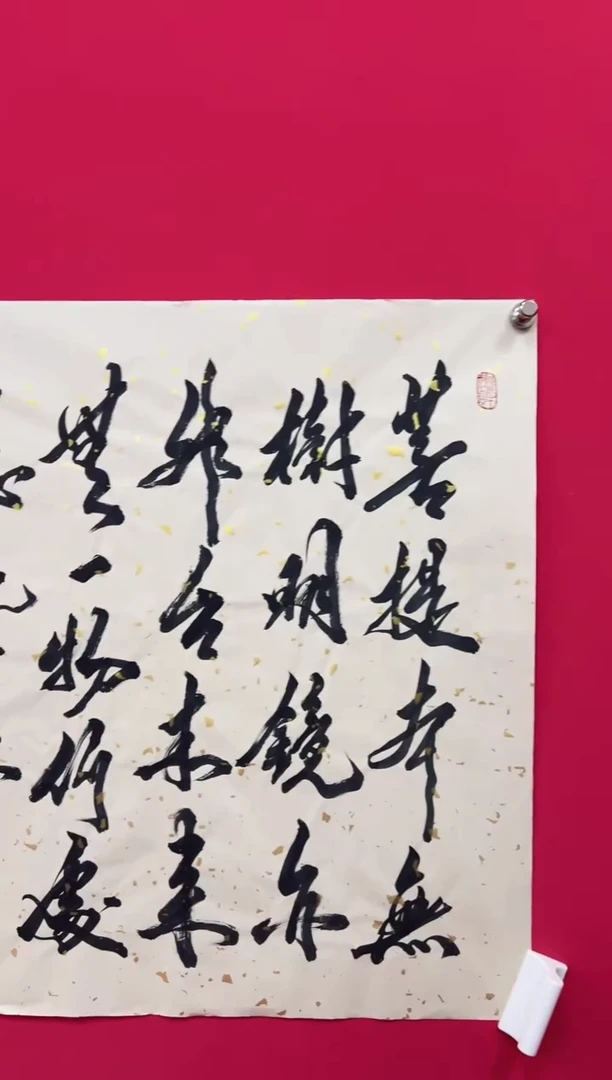 菩提本無
樹明鏡亦
非台本来
無一物何處